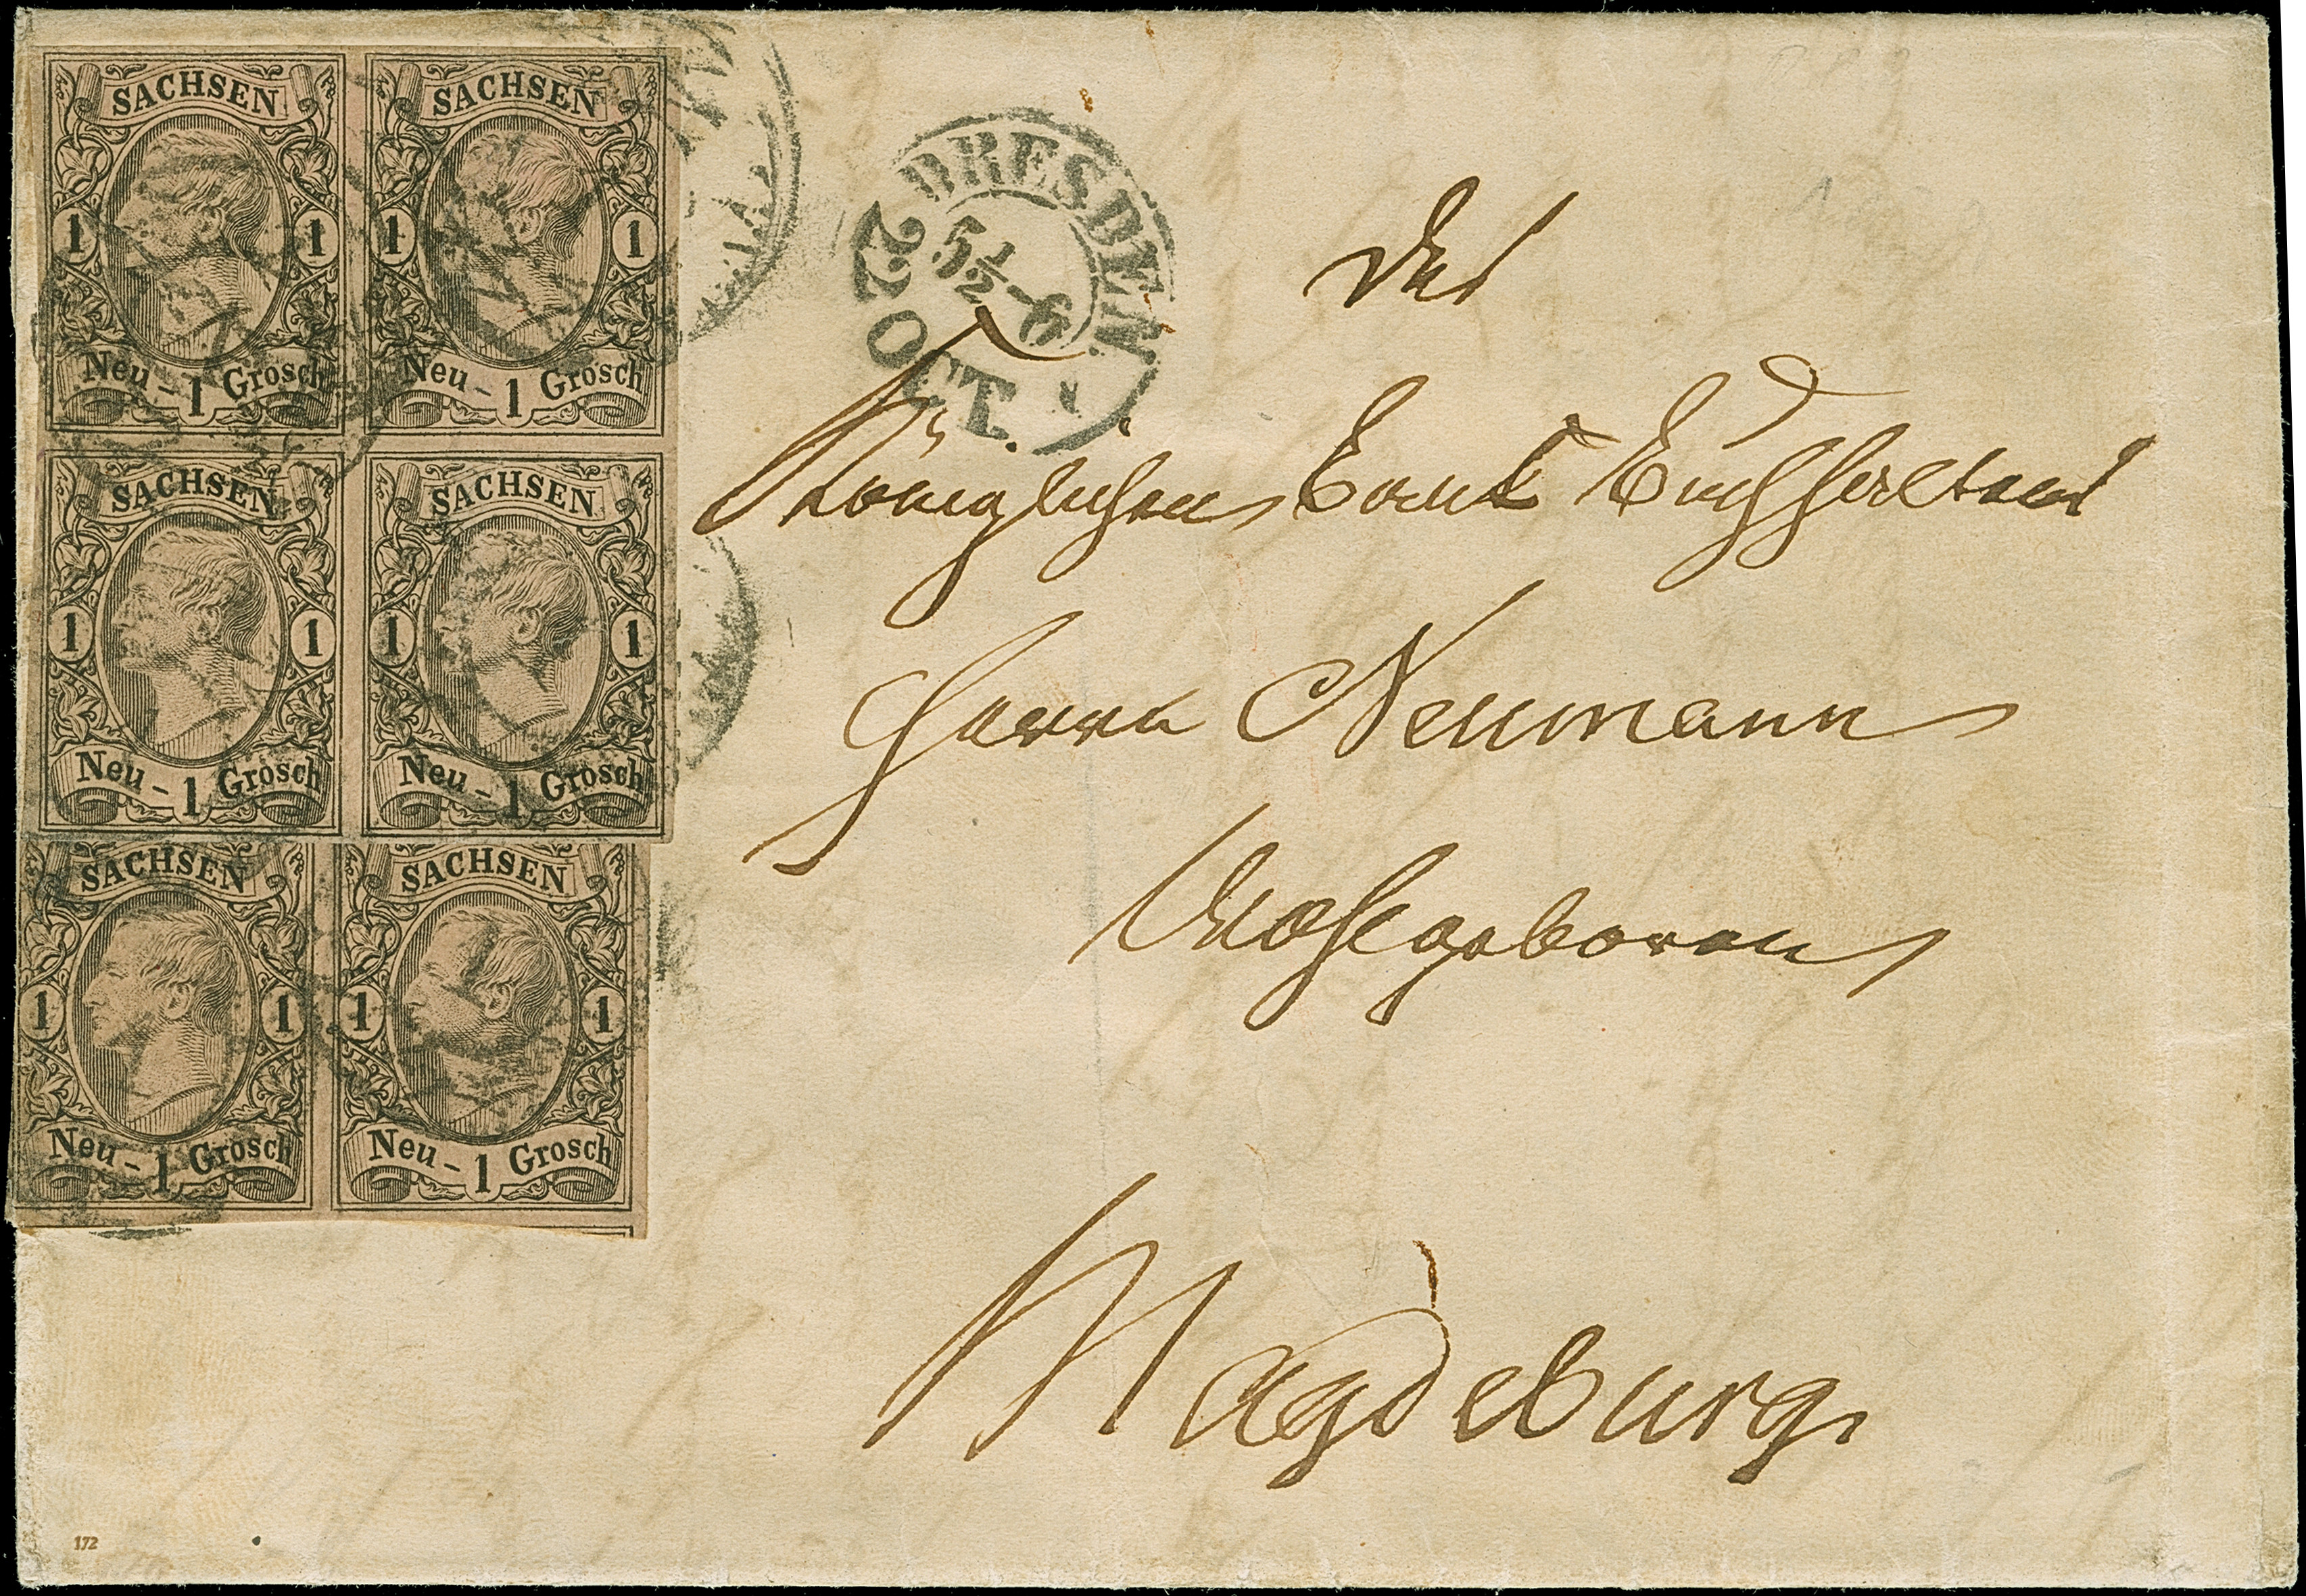 SACHSEN SACHSEN
1 1 1 1
Neu - 1 Grosch Neu - 1 Grosch
SACHSEN SACHSEN
1 1 1 1
Neu - 1 Grosch Neu - 1 Grosch
SACHSEN SACHSEN
1 1 1 1
Neu - 1 Grosch Neu - 1 Grosch
DRESDEN
5½-6
22 OCT.
Des
Königlichen Bank Buchhalters
Herrn Neumann
Wohlgeboren
Magdeburg
172